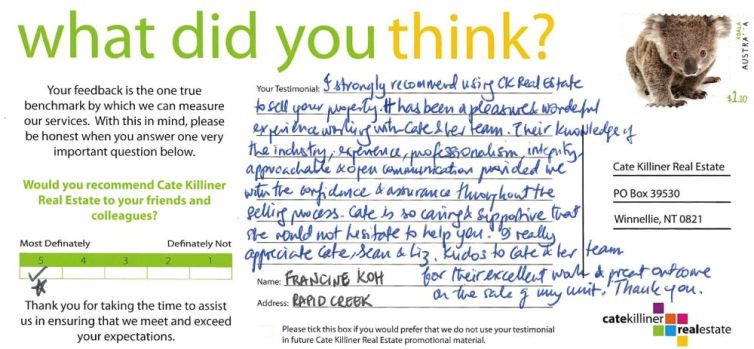 what did you think?
Your feedback is the one true
benchmark by which we can measure
our services. With this in mind, please
be honest when you answer one very
important question below.
Would you recommend Cate Killiner
Real Estate to your friends and
colleagues?
Most Definately Definately Not
5 4 3 2 1
Thank you for taking the time to assist
us in ensuring that we meet and exceed
your expectations.
Your Testimonial: I strongly recommend using CK Real Estate
to sell your property. It has been a pleasure & wonderful
experience working with Cate & her team. Their knowledge of
the industry, experience, professionalism, integrity,
approachable & open communication provided me
with the confidence & assurance throughout the
selling process. Cate is so caring & supportive that
she would not hesitate to help you. I really
appreciate Cate, Sean & Liz. Kudos to Cate & her team
for their excellent work & great outcome
on the sale of my unit! Thank you.
Name: FRANCINE KOH
Address: RAPID CREEK
Please tick this box if you would prefer that we do not use your testimonial
in future Cate Killiner Real Estate promotional material.
KOALA
AUSTRALIA
$1.10
Cate Killiner Real Estate
PO Box 39530
Winnellie, NT 0821
catekilliner
realestate